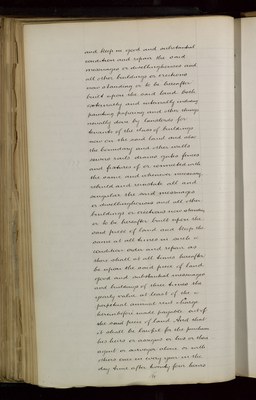 and keep in good and substantial
condition and repair the said
messuages or dwellinghouses and
all other buildings or erections
now standing or to be hereafter
built upon the said land both
externally and internally including
painting papering and other things
usually done by landlords for
tenants of the class of buildings
now on the said land and also
the boundary and other walls
sewers rails drains gates fences
and fixtures of or connected with
the same and whenever necessary
rebuild and reinstate all and
singular the said messuages
or dwellinghouses and all other
buildings or erections now standing
or to be hereafter built upon the
said piece of land and keep the
same at all times in such
condition order and repair as
there shall at all times hereafter
be upon the said piece of land
good and substantial messuages
and buildings of three times the
yearly value at least of the
perpetual annual rent charge
hereinbefore made payable out of
the said piece of land And that
it shall be lawful for the
his heirs or assigns or his or their
agent or surveyor alone or with
others once in every year in the
day time after twenty four hours